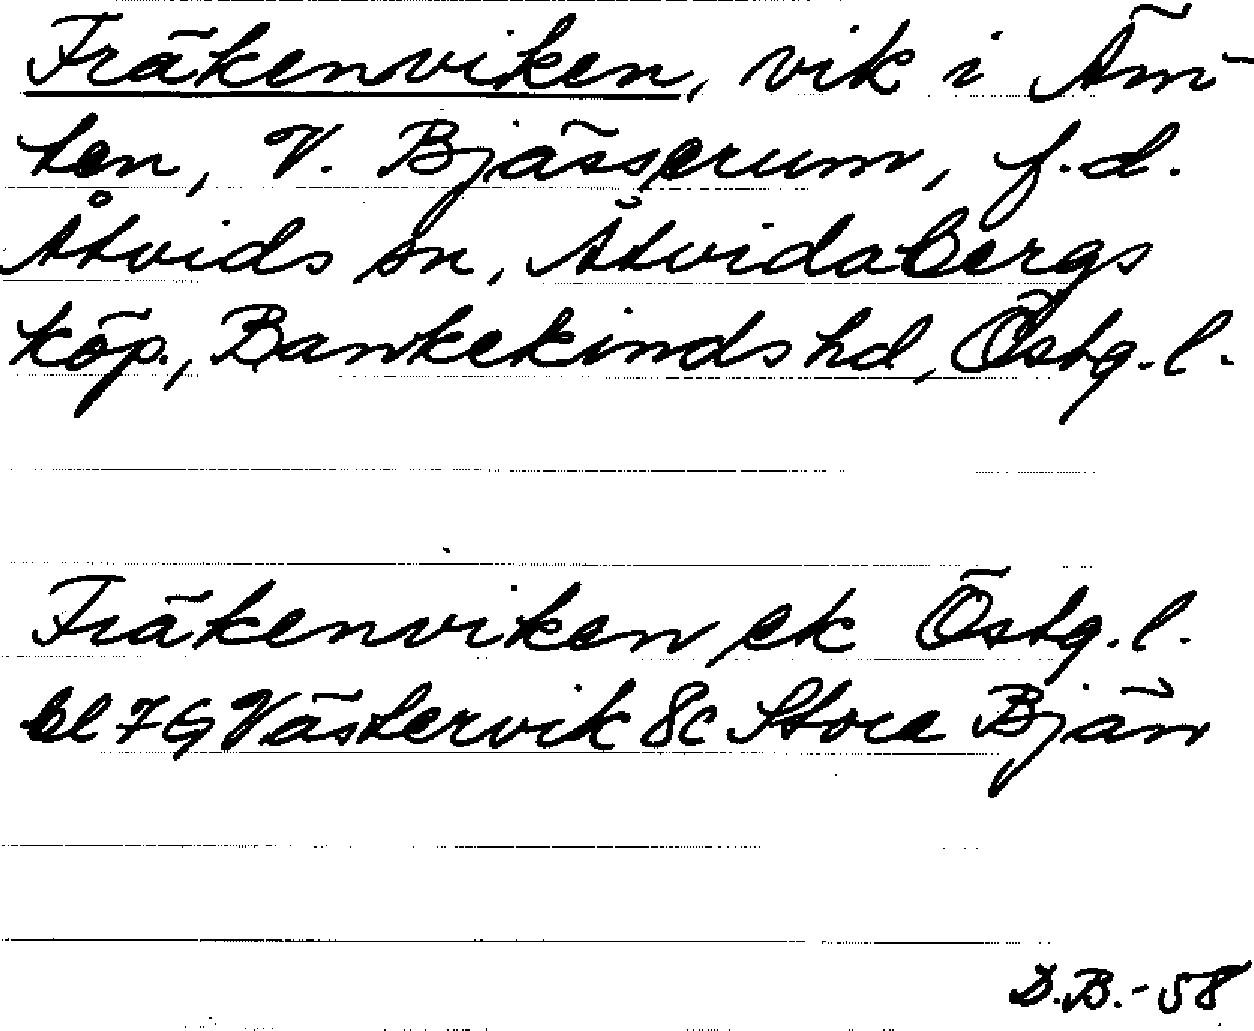 Fräkenviken, vik i Äm-
ten, V. Bjässerum, f.d.
Åtvids sn, Åtvidabergs
köp., Bankekinds hd, Östg. l.
Fräkenviken ek Östg. l.
bl 7G Västervik 8c Stora Bjän
D.B.-58